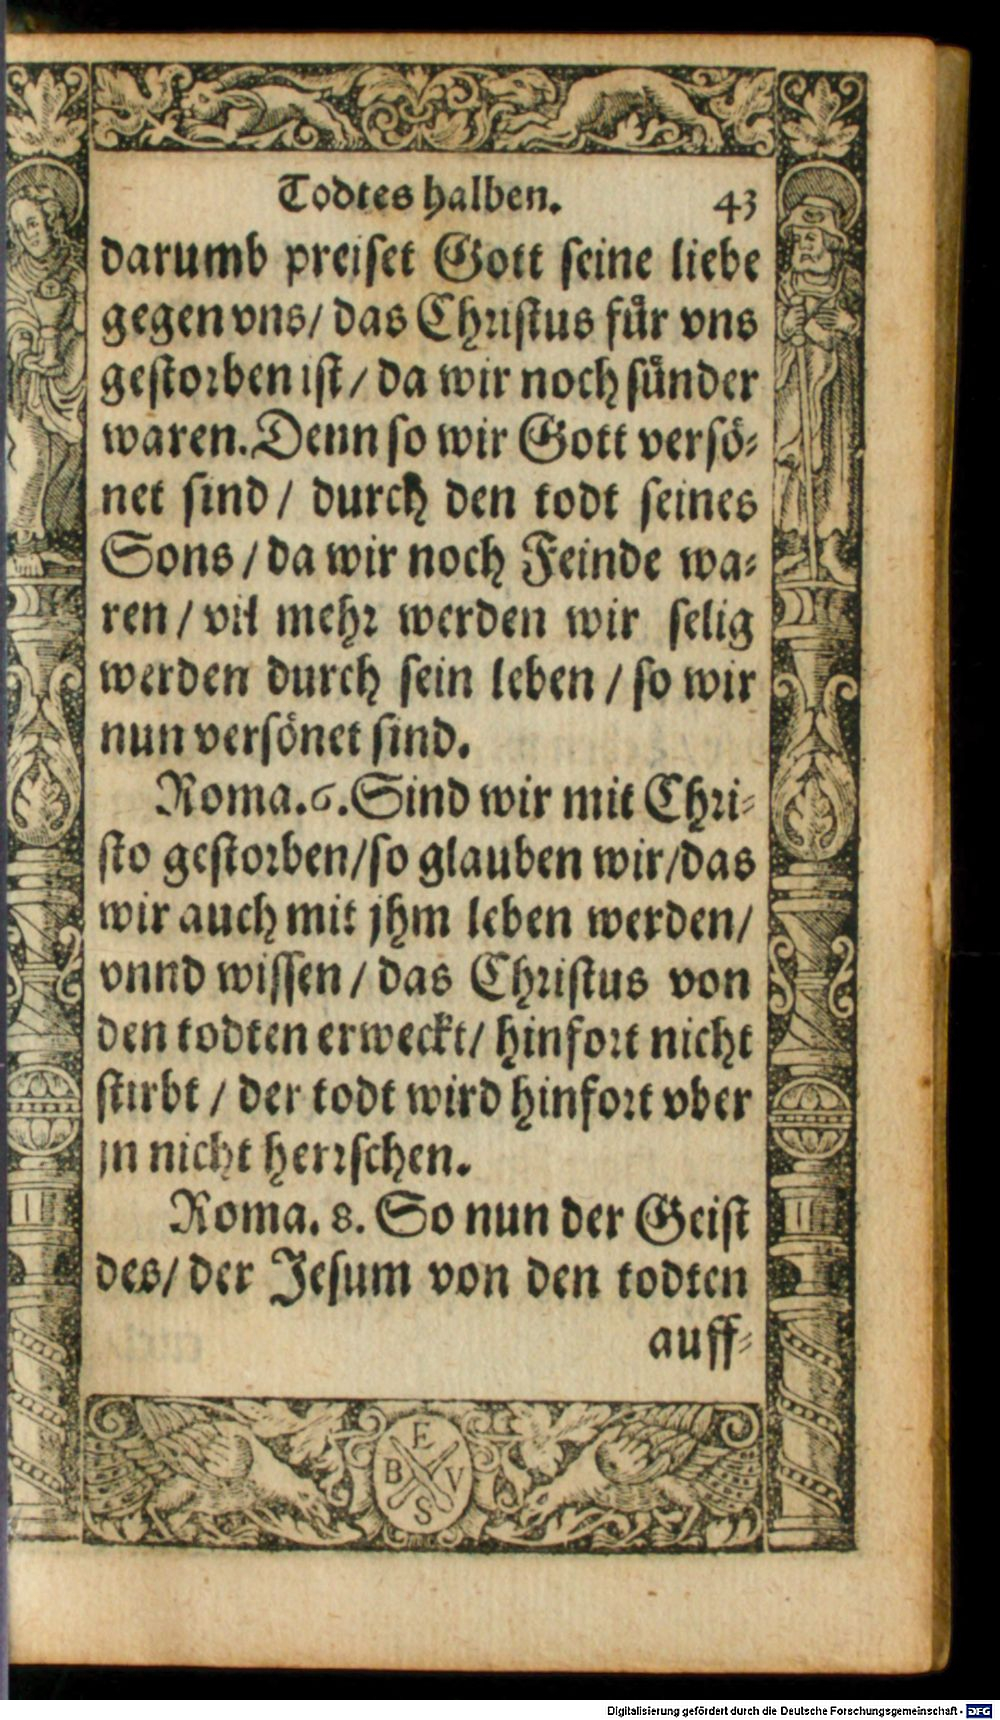 Todtes halben. 43
darumb preiset Gott seine liebe
gegen vns/ das Christus für vns
gestorben ist/ da wir noch sünder
waren. Denn so wir Gott versö-
net sind/ durch den todt seines
Sons/ da wir noch Feinde wa-
ren/ vil mehr werden wir selig
werden durch sein leben/ so wir
nun versönet sind.
Roma. 6. Sind wir mit Chri-
sto gestorben/ so glauben wir/ das
wir auch mit jhm leben werden/
vnnd wissen/ das Christus von
den todten erweckt/ hinfort nicht
stirbt/ der todt wird hinfort vber
jn nicht herrschen.
Roma. 8. So nun der Geist
des/ der Jesum von den todten
auff-
E
B V
S
Digitalisierung gefördert durch die Deutsche Forschungsgemeinschaft - DFG